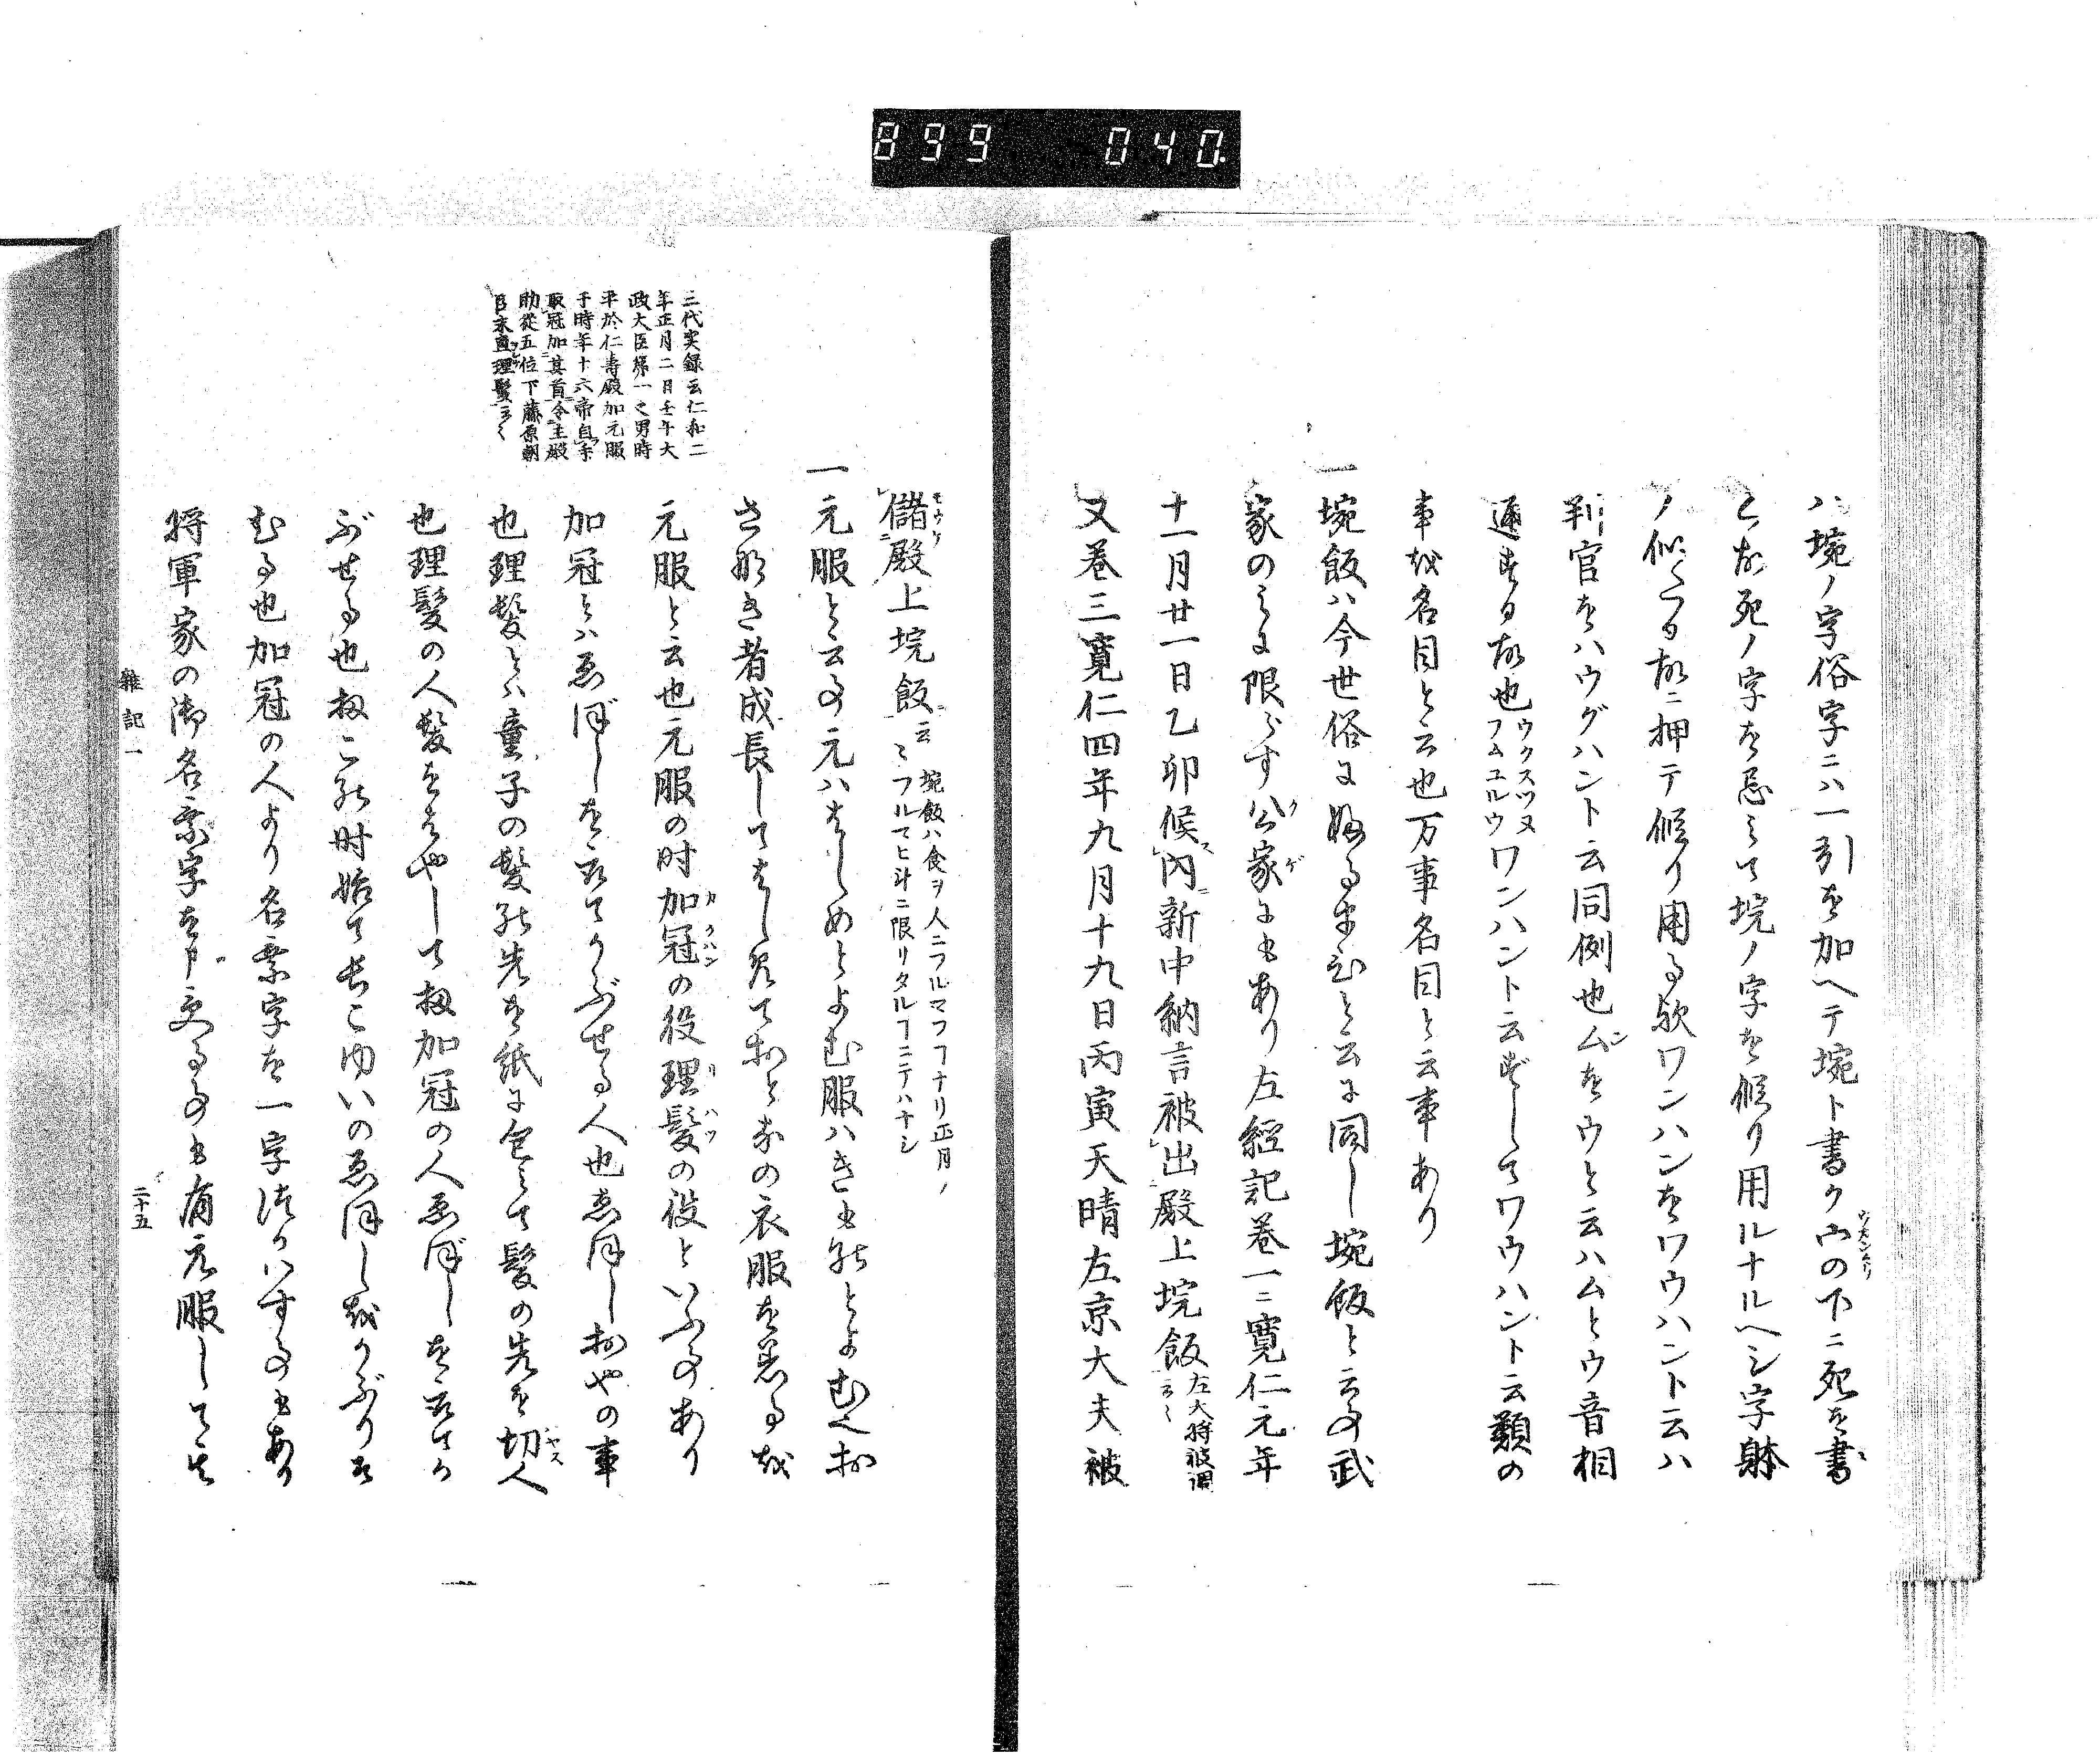 899 040.
ハ埦ノ字俗字ニハ一引を加ヘテ埦ト書ク宀の下ニ死を書
ノ字を忌ミて垸ノ字を仮リ用ルナルヘシ字躰
ノ似たる故ニ押テ仮り用る歟ワンハンをワウハント云ハ
判官をハウグハント云同例也ムをウと云ハムとウ音相
通する故也ウクスツヌフムユルウワンハント云ずしてワウハント云類の
事を名目と云也万事名目と云事あり
一埦飯ハ今世俗に
と云に同し埦飯と云事武
家のみに限らす公家にもあり左経記巻一ニ寛仁元年
十一月廿一日乙卯候内新中納言被出殿上垸飯左大将被調云々
又巻三寛仁四年九月十九日丙寅天晴左京大夫被
儲殿上垸飯云々埦飯ハ食ヲ人ニフルマフヿナリ正月ノフルマヒ斗ニ限リタルヿニテハナシ
一元服と云事元ハはしめとよむ服ハきものとよむ
さなき者成長してはしめて
の衣服を着るを
元服と云也元服の時加冠の役理髪の役といふ事あり
加冠とハゑぼしを取てかぶせる人也ゑぼしおやの事
也理髪とハ童子の髪の先を紙に包みて髪の先を切人
也理髪の人髪をはやして扨加冠の人ゑぼしを取てか
ぶせる也扨この時始て
ゆいのゑぼしをかぶりそ
むる也加冠の人より名乗字を一字
事もあり
将軍家の御名乗字を申
る事も有元服して
三代実録云仁和二
年正月二日壬午大
政大臣第一之男時
平於仁寿殿加元服
于時年十六帝自手
取冠加其首令主殿
助従五位下藤原朝
臣末直理髪云々
雑記一
二十五